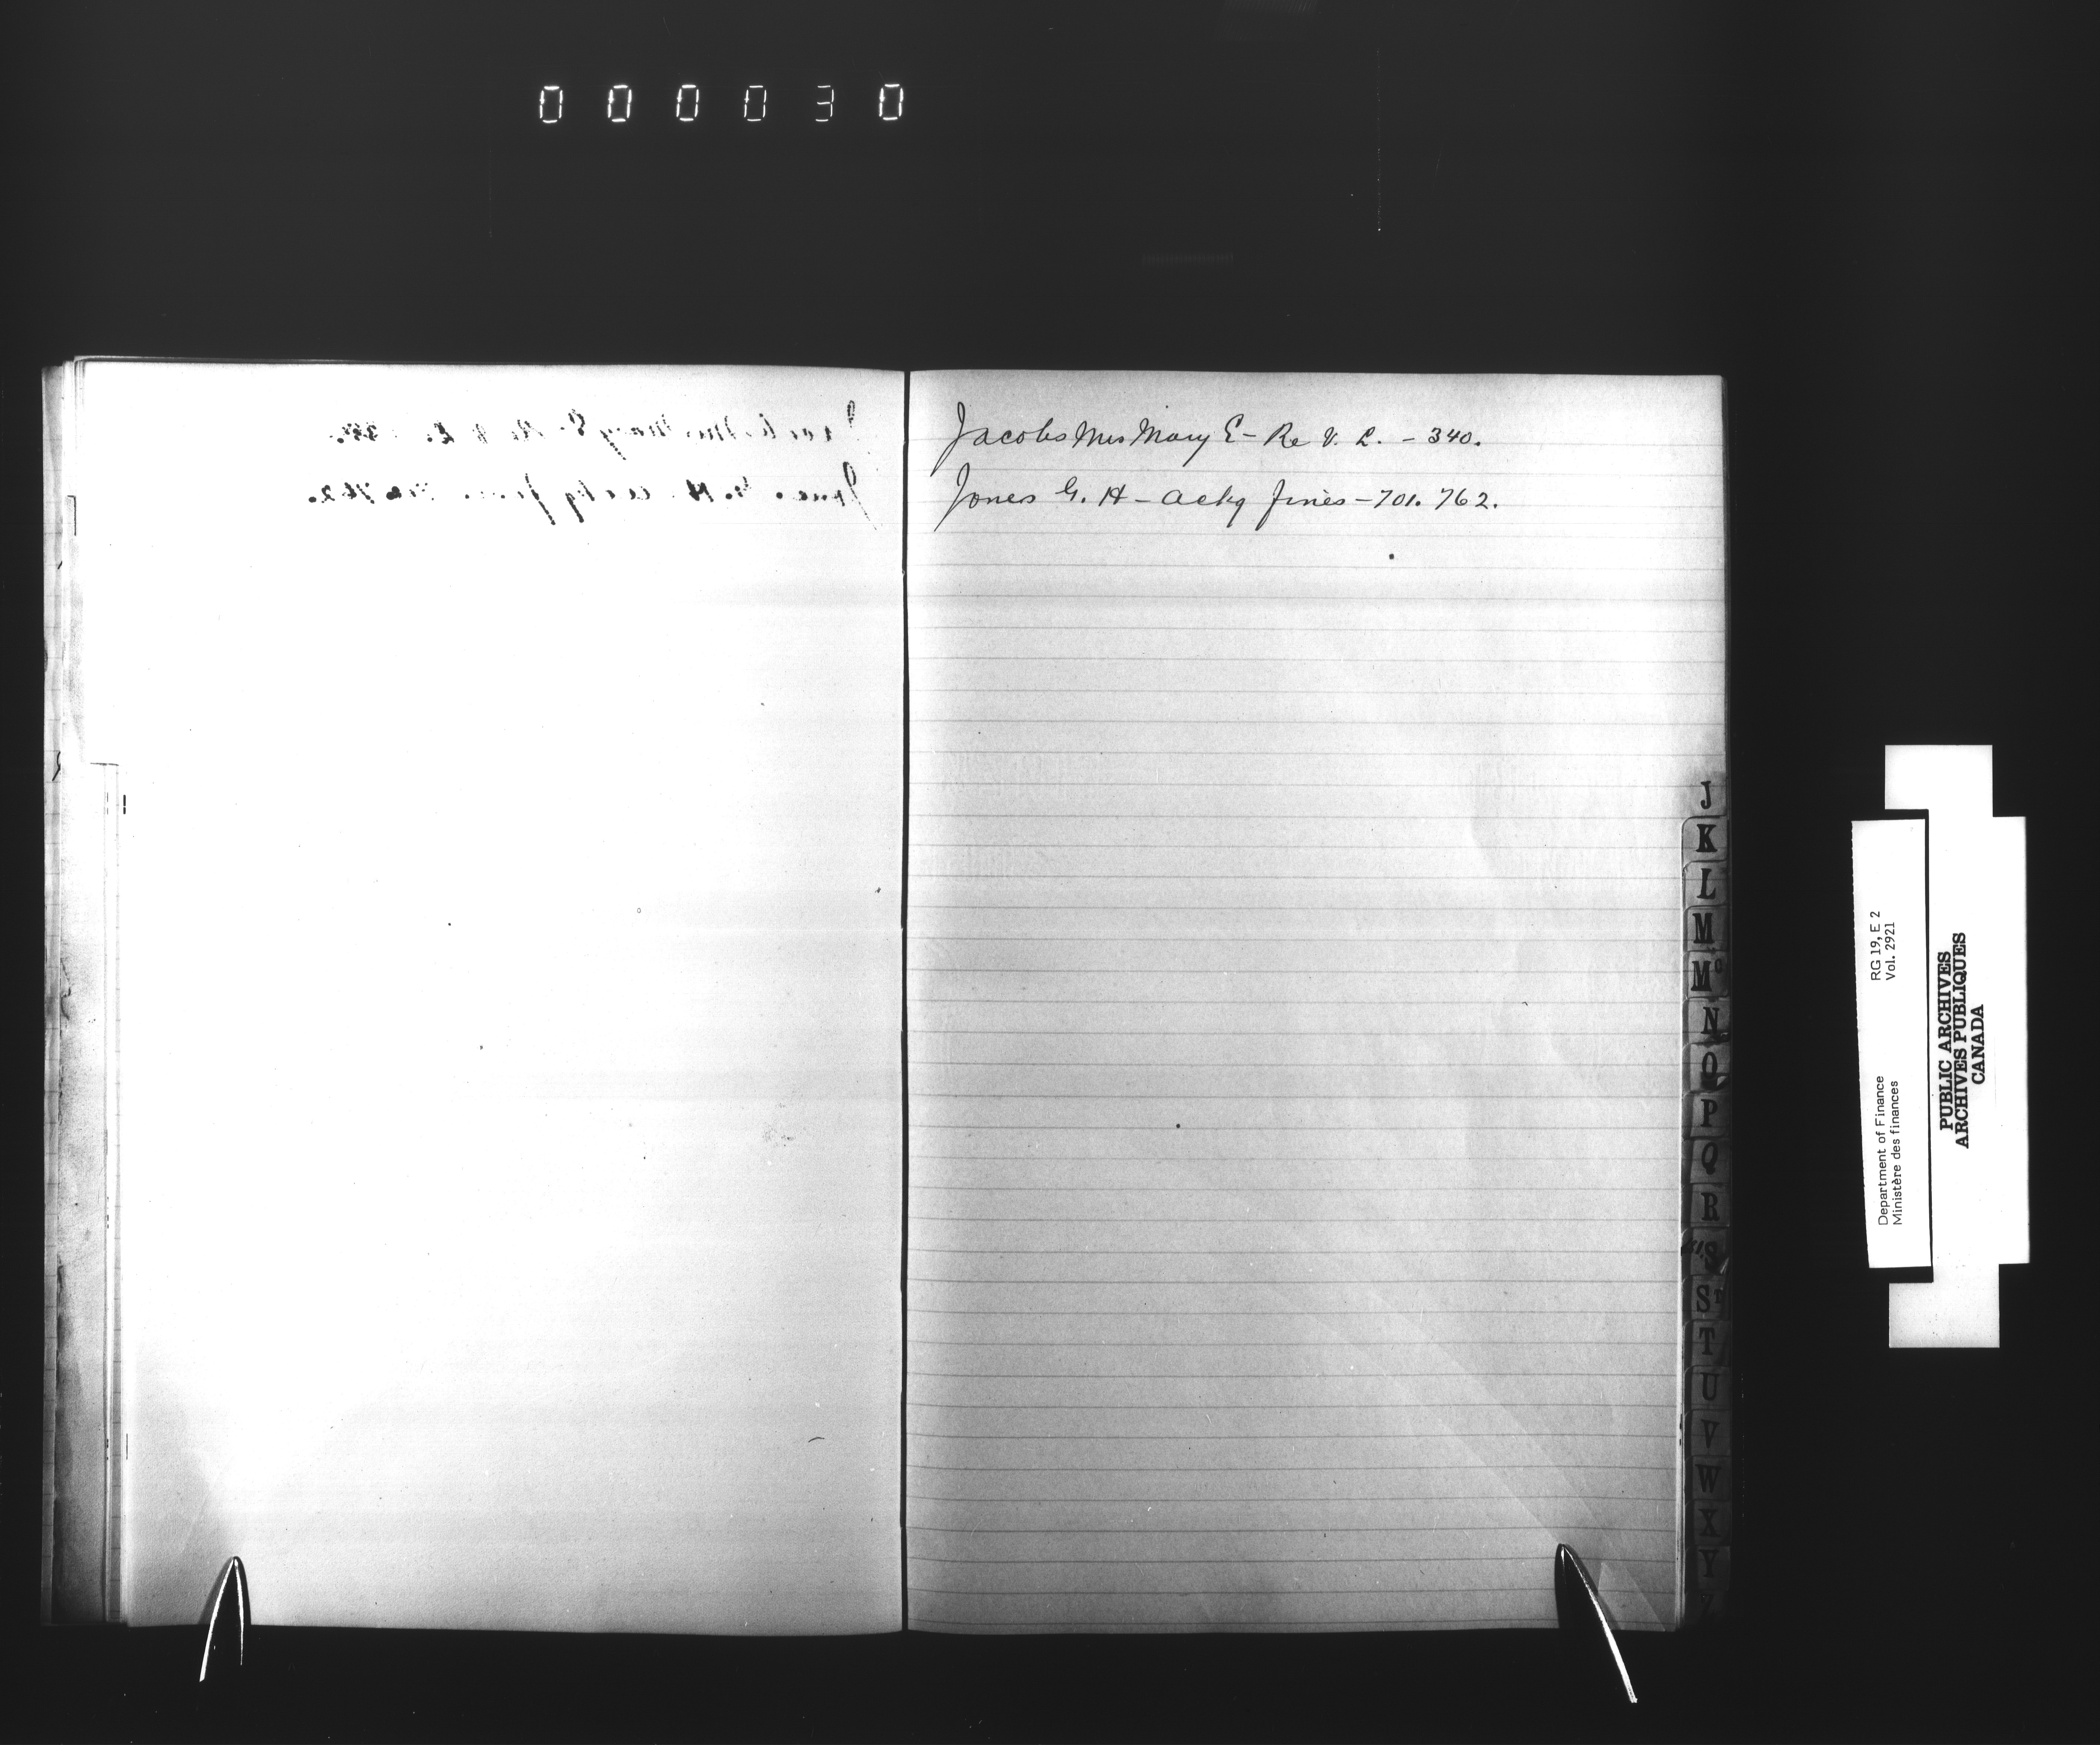 000030
Jacobs Mrs Mary E - Re V. L. - 340.
Jones G. H - ackg fines - 701. 762.
J
K
L
M
Mc
N
O
P
Q
R
S
St
T
U
V
W
X
Y
Z
Department of Finance RG 19, E 2
Ministère des finances Vol. 2921
PUBLIC ARCHIVES
ARCHIVES PUBLIQUES
CANADA